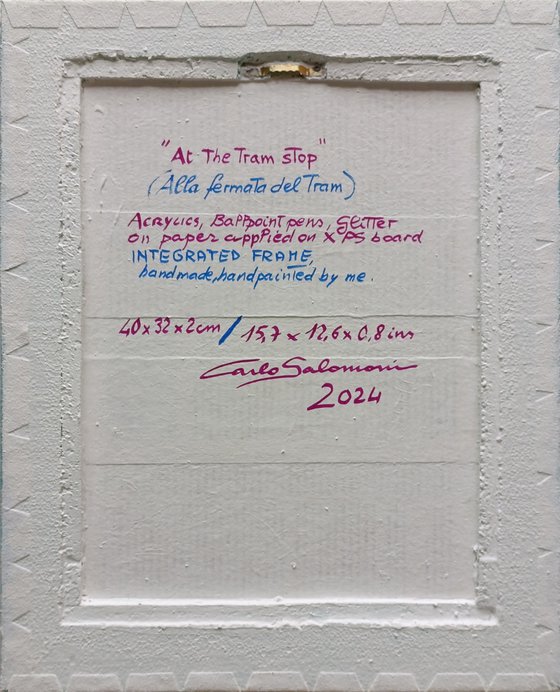 "At The Tram stop"
(Alla fermata del Tram)
Acrylics, Ballpoint pens, Glitter
on paper applied on XPS board
INTEGRATED FRAME,
handmade, handpainted by me.
40x32x2cm / 15,7 x 12,6 x 0,8 ins
Carlo Salomoni
2024